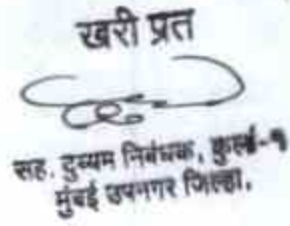 खरी प्रत
सह. दुय्यम निबंधक, कुर्ला-१
मुंबई उपनगर जिल्हा.